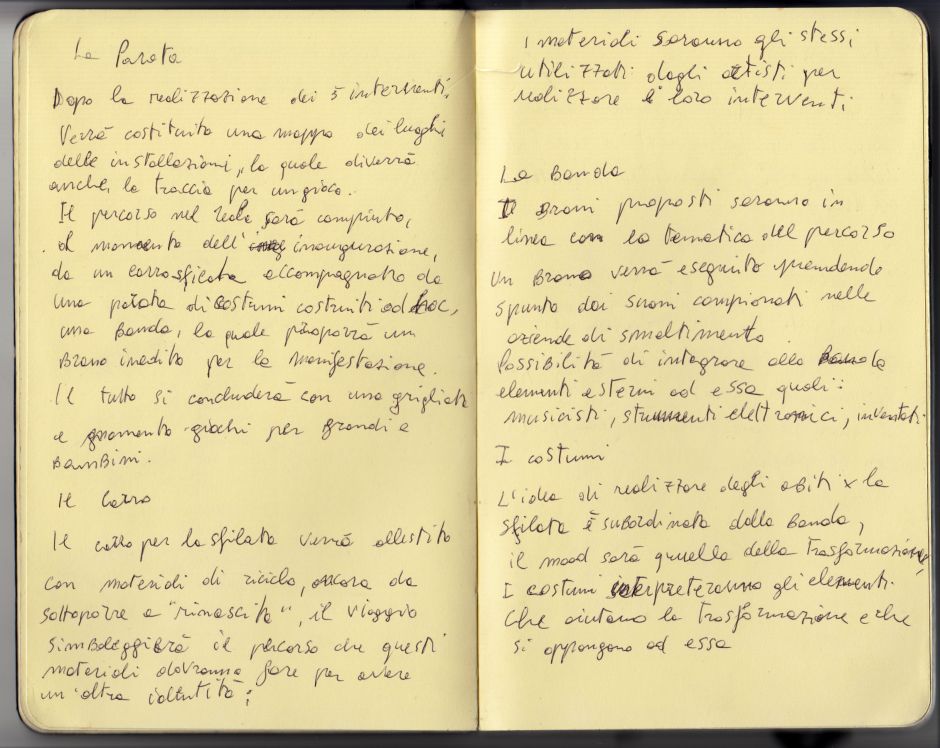 La Parata
Dopo la realizzazione dei 5 interventi,
verrà costituita una mappa dei luoghi
delle installazioni, la quale diverrà
anche, la traccia per un gioco.
Il percorso nel reale sarà compiuto,
al momento dell' inaugurazione,
da un carro sfilata accompagnato da
una parata di costumi costruiti ad hoc,
una Banda, la quale proporrà un
Brano inedito per la manifestazione.
Il tutto si concluderà con una grigliata
e momento giochi per grandi e
bambini.
Il Carro
Il carro per la sfilata verrà allestito
con materiali di riciclo, ancora da
sottoporre a "rinascita", il viaggio
simboleggierà il percorso che questi
materiali dovranno fare per avere
un'altra identità;
I materiali saranno gli stessi
utilizzati dagli artisti per
realizzare i loro interventi.
La Banda
I Brani proposti saranno in
linea con la tematica del percorso
un Brano verrà eseguito prendendo
spunto dai suoni campionati nelle
aziende di smaltimento.
Possibilità di integrare alla Banda
elementi esterni ad essa quali:
musicisti, strumenti elettronici, inventati
I costumi
L'idea di realizzare degli abiti x la
sfilata è subordinata dalla Banda,
il mood sarà quello della trasformazione,
I costumi interpreteranno gli elementi
che aiutano la trasformazione e che
si oppongono ad essa